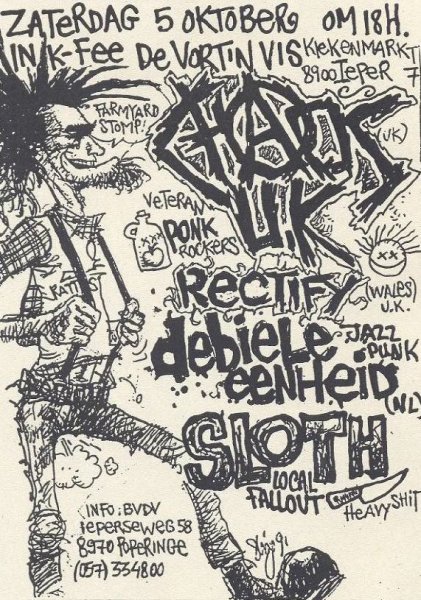 ZATERDAG 5 OKTOBER OM 18H.
IN K-FEE DE VORTIN VIS KIEKENMARKT 7
8900 IEPER
FARMYARD
STOMP!
CHAOS
U.K
(UK)
VETERAN
PONK
ROCKERS
RECTIFY
(WALES)
U.K.
RATTUS
debiele
eenheid
JAZZ
PUNK
(NL)
SLOTH
LOCAL
FALLOUT
HEAVY SHIT
INFO: BVDV
IEPERSEWEG 58
8970 POPERINGE
(057) 334800